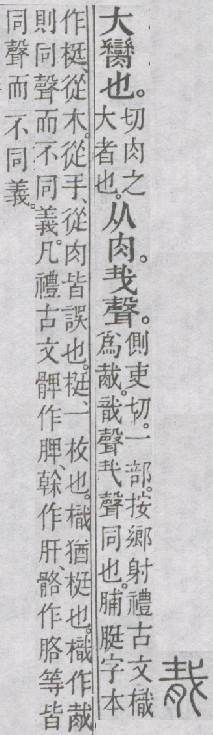 胾
大臠也。
切肉之
大者也。
从肉𢦏聲。
側吏切。一部。按鄉射禮古文樴
爲胾。戠聲𢦏聲同也。脯脡字本
作梃、從木。從手、從肉皆誤也。梃、一枚也。樴猶梃也。樴作胾
則同聲而不同義。凡禮古文髀作脾、榦作肝、骼作胳等皆
同聲而不同義。